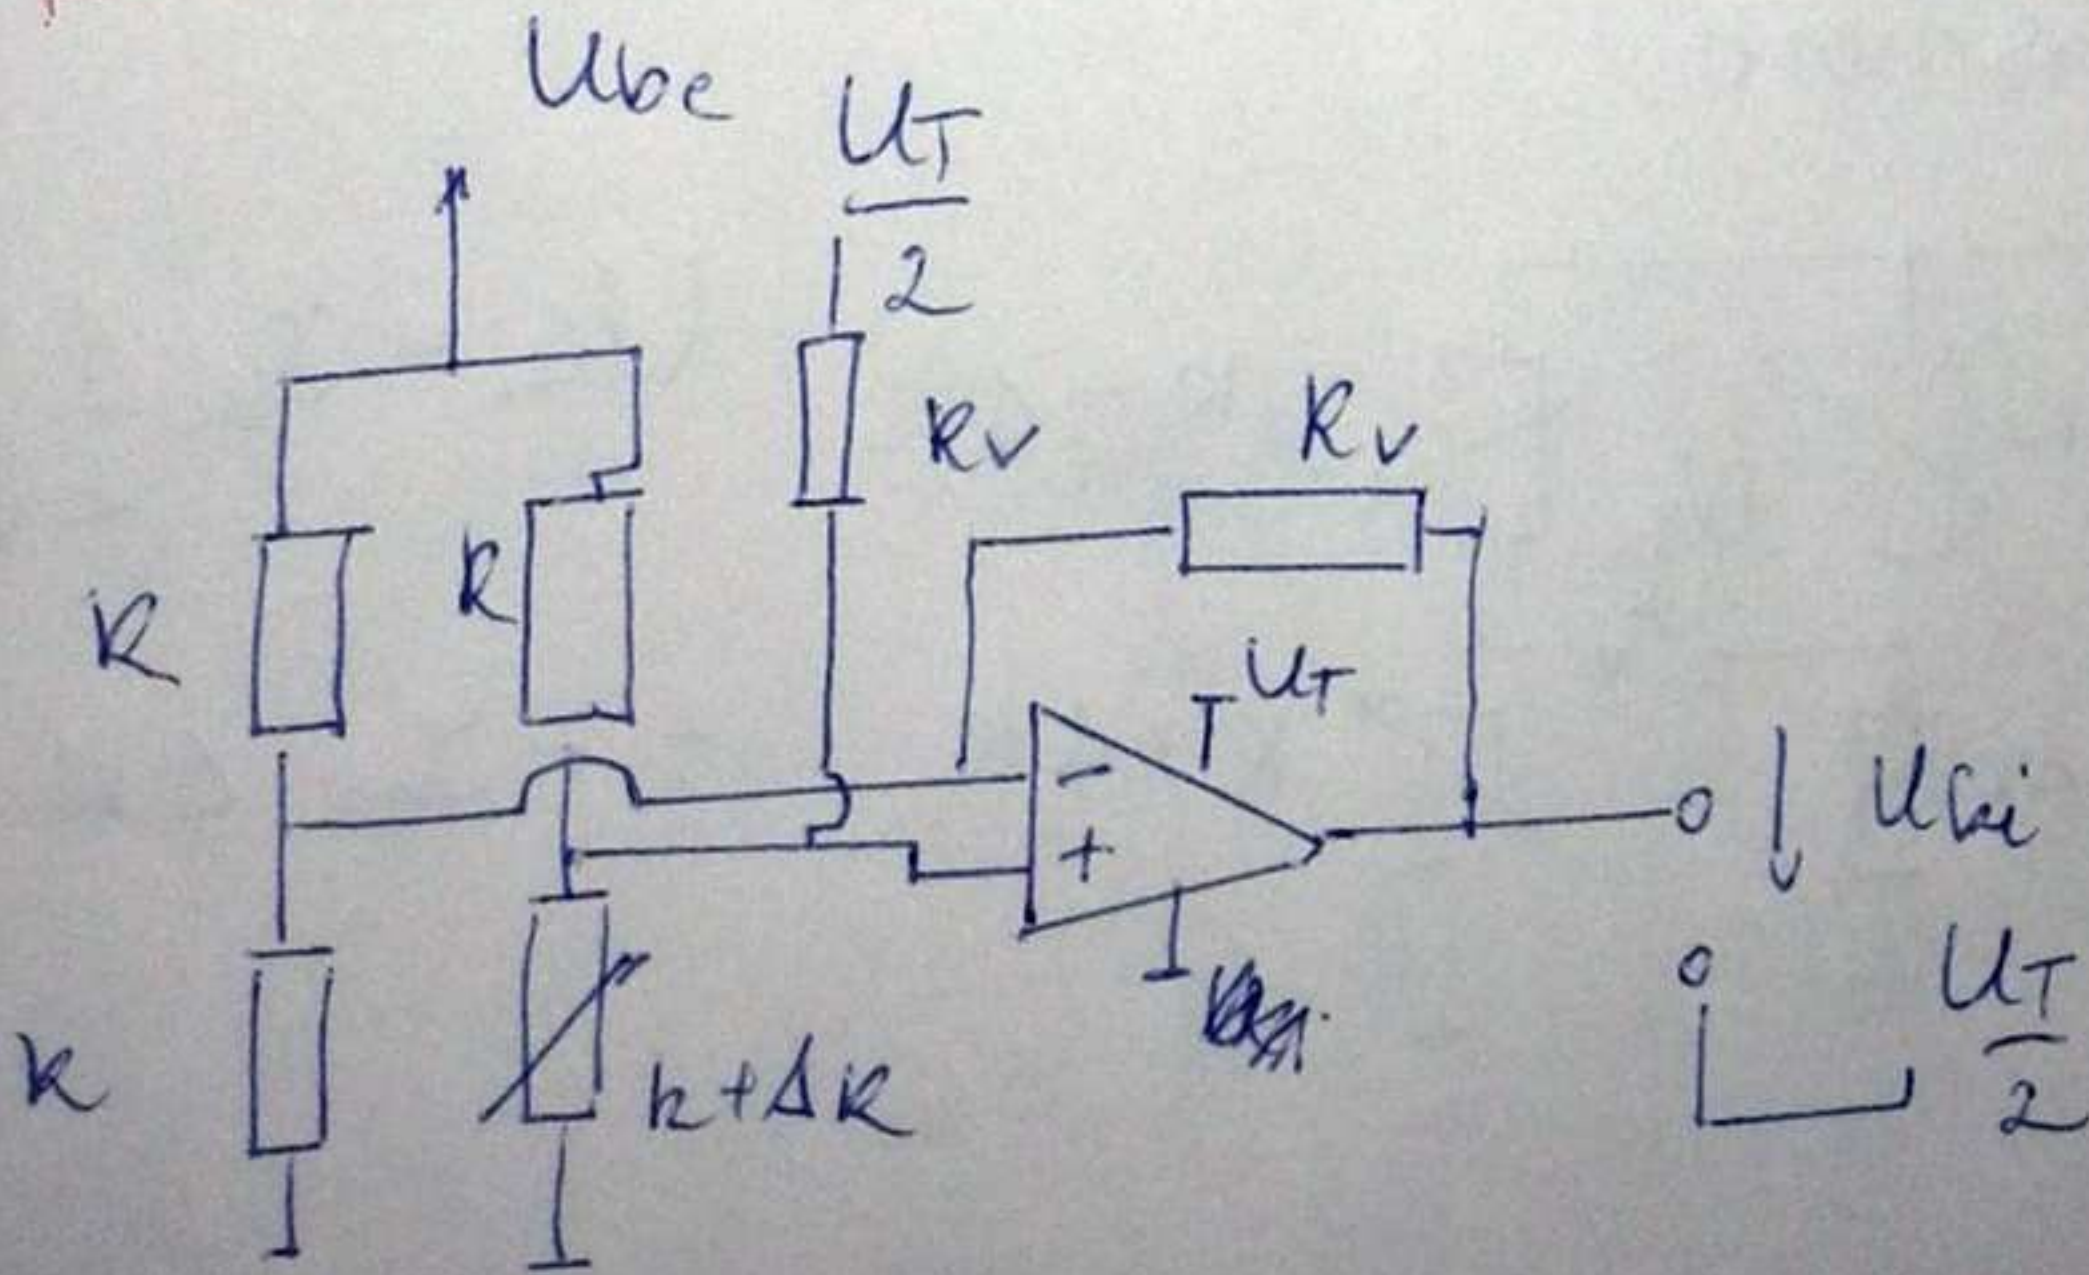 Ube
UT
2
Rv
Rv
R
R
UT
-
+
Uki
R
R+ΔR
UT
2